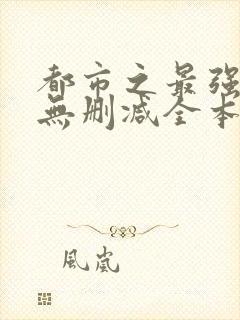 都市之最强
無刪減全本
風嵐